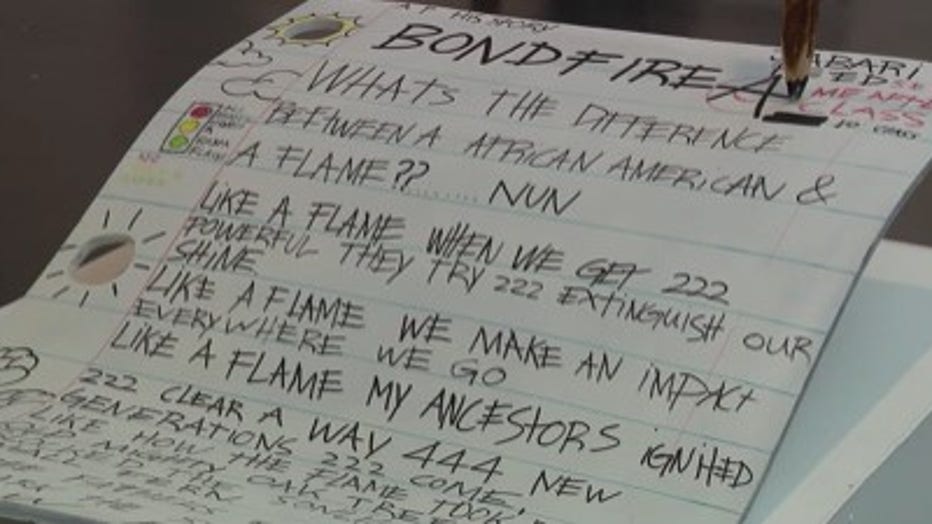 A.P. HISTORY
BONDFIRE
JABARI
CLASS
WHATS THE DIFFERENCE
BETWEEN A AFRICAN AMERICAN &
A FLAME?? ...... NUN
LIKE A FLAME WHEN WE GET 222
POWERFUL THEY TRY 222 EXTINGUISH OUR
SHINE
LIKE A FLAME WE MAKE AN IMPACT
EVERYWHERE WE GO
LIKE A FLAME MY ANCESTORS IGNIHED
222 CLEAR A WAY 444 NEW
GENERATIONS 222 COME,
LIKE HOW THE FLAME TOOK
MIGHTY OAK TREE